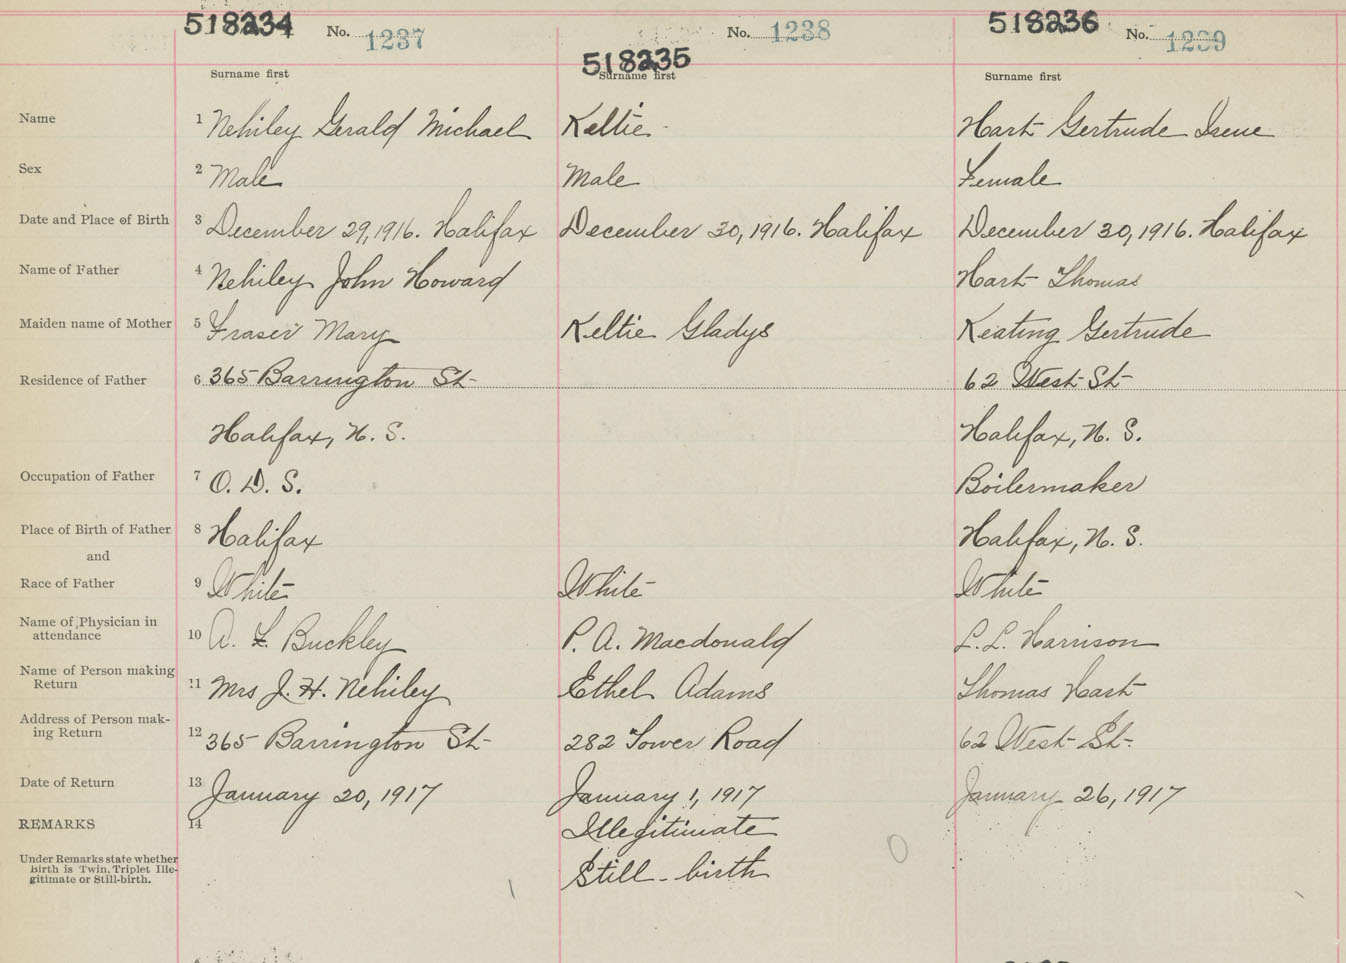 518234 No. 1237 No. 1238 518236 No. 1239
518235
Surname first Surname first Surname first
Name 1 Nehiley Gerald Michael Keltie Hart Gertrude Irene
Sex 2 Male Male Female
Date and Place of Birth 3 December 29, 1916. Halifax December 30, 1916. Halifax December 30, 1916. Halifax
Name of Father 4 Nehiley John Howard Hart Thomas
Maiden name of Mother 5 Fraser Mary Keltie Gladys Keating Gertrude
Residence of Father 6 365 Barrington St 62 West St
Halifax, N. S. Halifax, N. S.
Occupation of Father 7 O. D. S. Boilermaker
Place of Birth of Father 8 Halifax Halifax, N. S.
and
Race of Father 9 White White White
Name of Physician in
attendance 10 A. F. Buckley P. A. Macdonald L. L. Harrison
Name of Person making
Return 11 Mrs J. H. Nehiley Ethel Adams Thomas Hart
Address of Person mak-
ing Return 12 365 Barrington St 282 Tower Road 62 West St.
Date of Return 13 January 20, 1917 January 1, 1917 January 26, 1917
REMARKS 14 Illegitimate
Under Remarks state whether
Birth is Twin, Triplet Ille-
gitimate or Still-birth. Still-birth